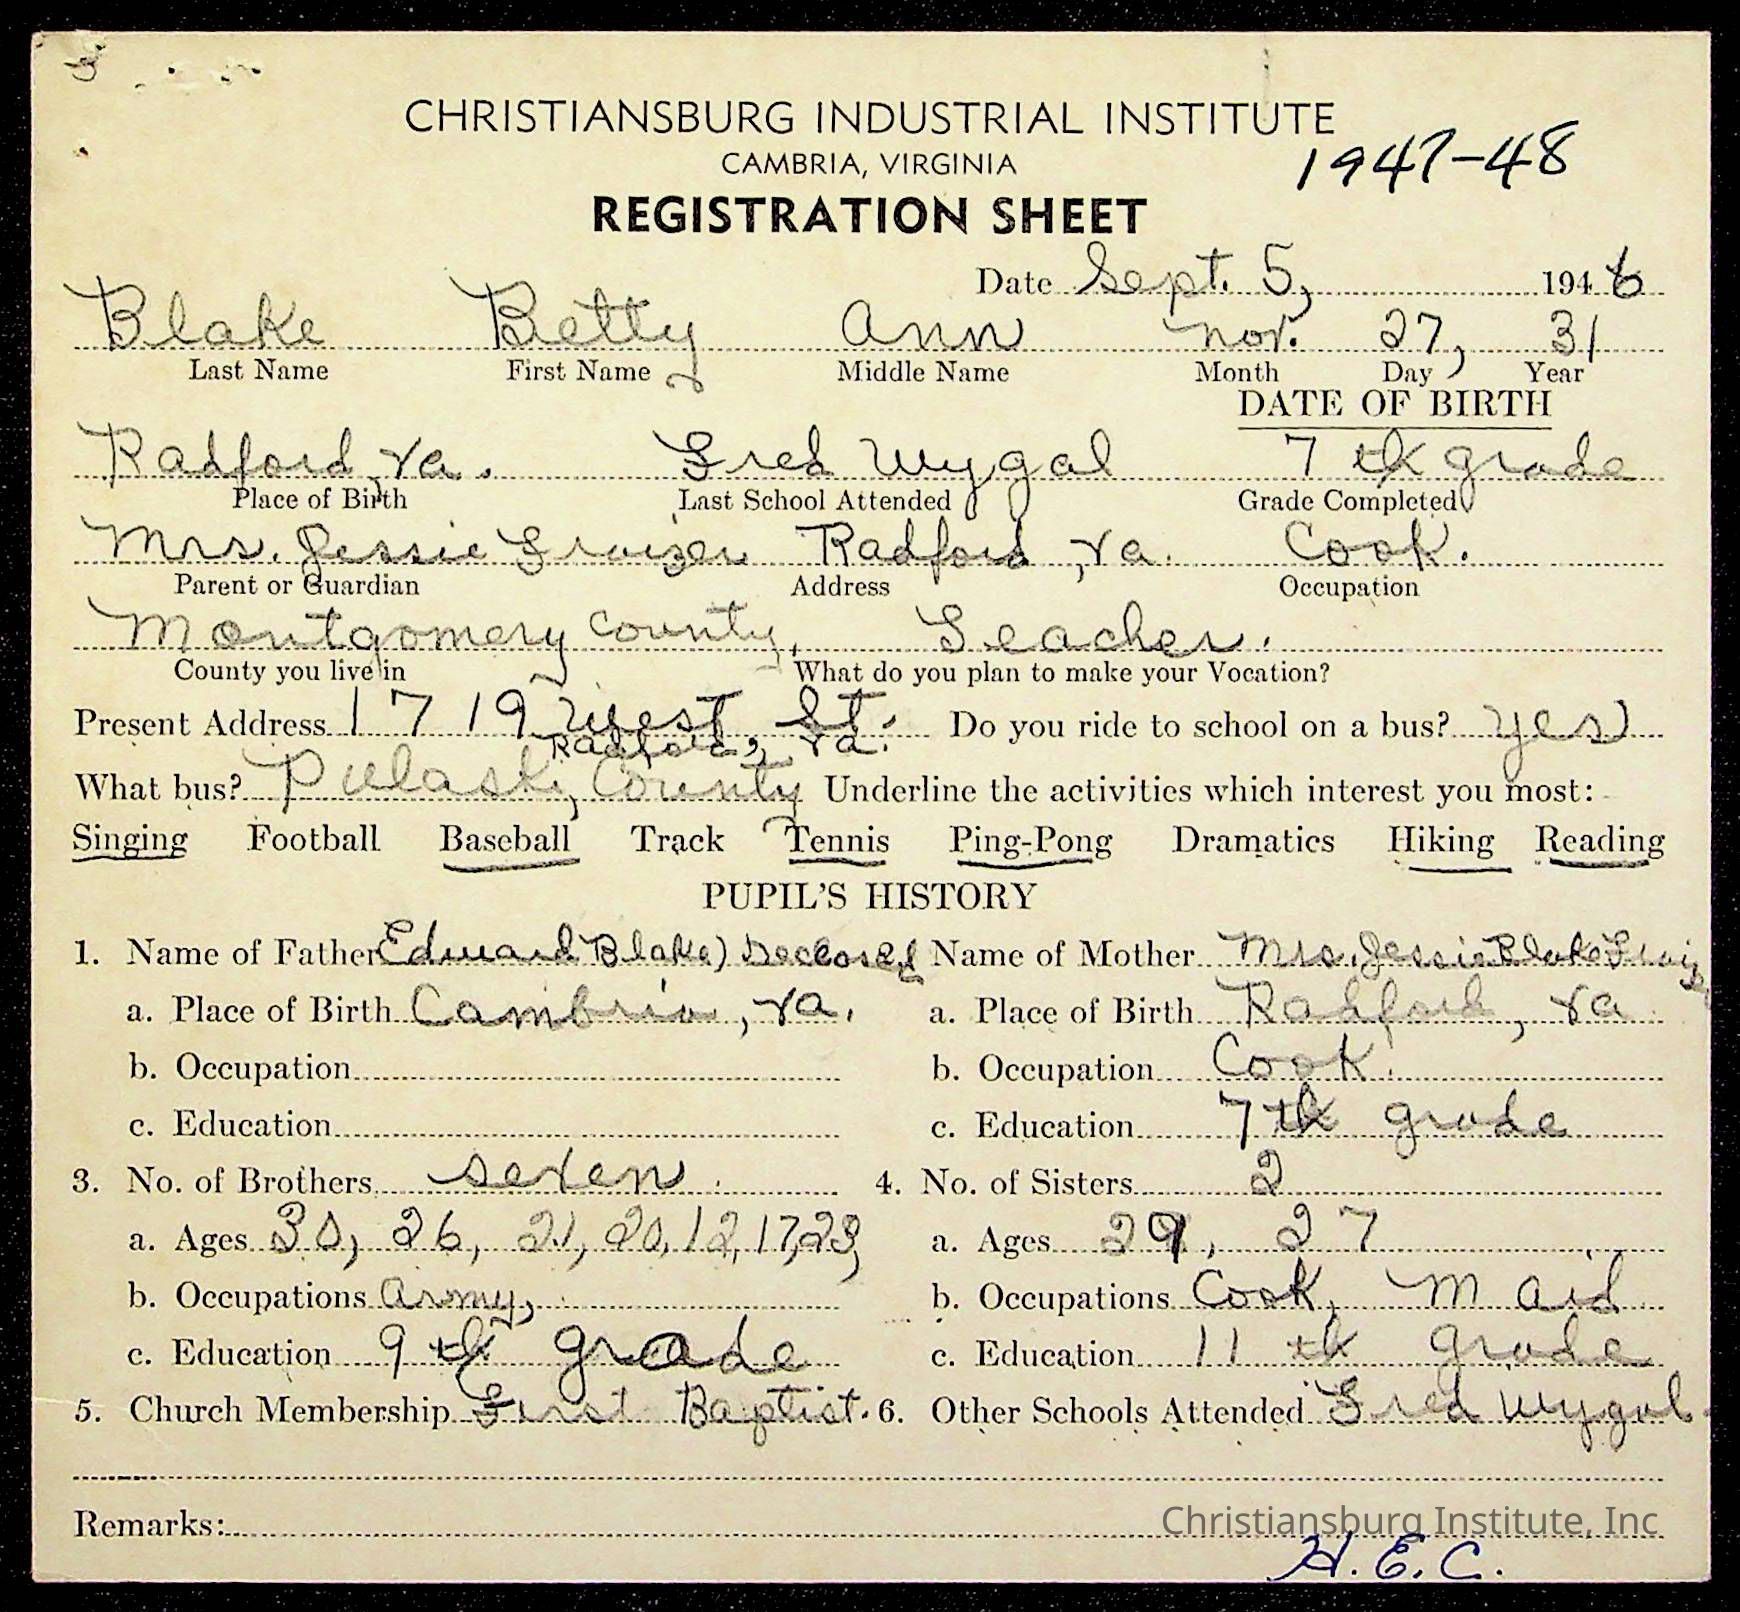 CHRISTIANSBURG INDUSTRIAL INSTITUTE
CAMBRIA, VIRGINIA
1947-48
REGISTRATION SHEET
Date Sept. 5, 1946
Blake Betty Ann Nov. 27, 31
Last Name First Name Middle Name Month Day Year
DATE OF BIRTH
Radford, Va. Fred Wygal 7th grade
Place of Birth Last School Attended Grade Completed
Mrs. Jessie Radford, Va. Cook.
Parent or Guardian Address Occupation
Montgomery County, Teacher.
County you live in What do you plan to make your Vocation?
Present Address 1719 West, St. Do you ride to school on a bus? yes
Radford, Va.
What bus? Pulaski, County Underline the activities which interest you most:
Singing Football Baseball Track Tennis Ping-Pong Dramatics Hiking Reading
PUPIL'S HISTORY
1. Name of Father Edward Blake) Name of Mother Mrs. Jessie Blake
a. Place of Birth Cambria, Va. a. Place of Birth Radford, Va
b. Occupation b. Occupation Cook.
c. Education c. Education 7th grade
3. No. of Brothers seven. 4. No. of Sisters 2
a. Ages 30, 26, 21, 20, 12, 17, 23, a. Ages 29, 27
b. Occupations Army, b. Occupations Cook, Maid
c. Education 9th grade c. Education 11th grade
5. Church Membership First Baptist. 6. Other Schools Attended Fred Wygal
Remarks:
Christiansburg Institute, Inc
H.E.C.